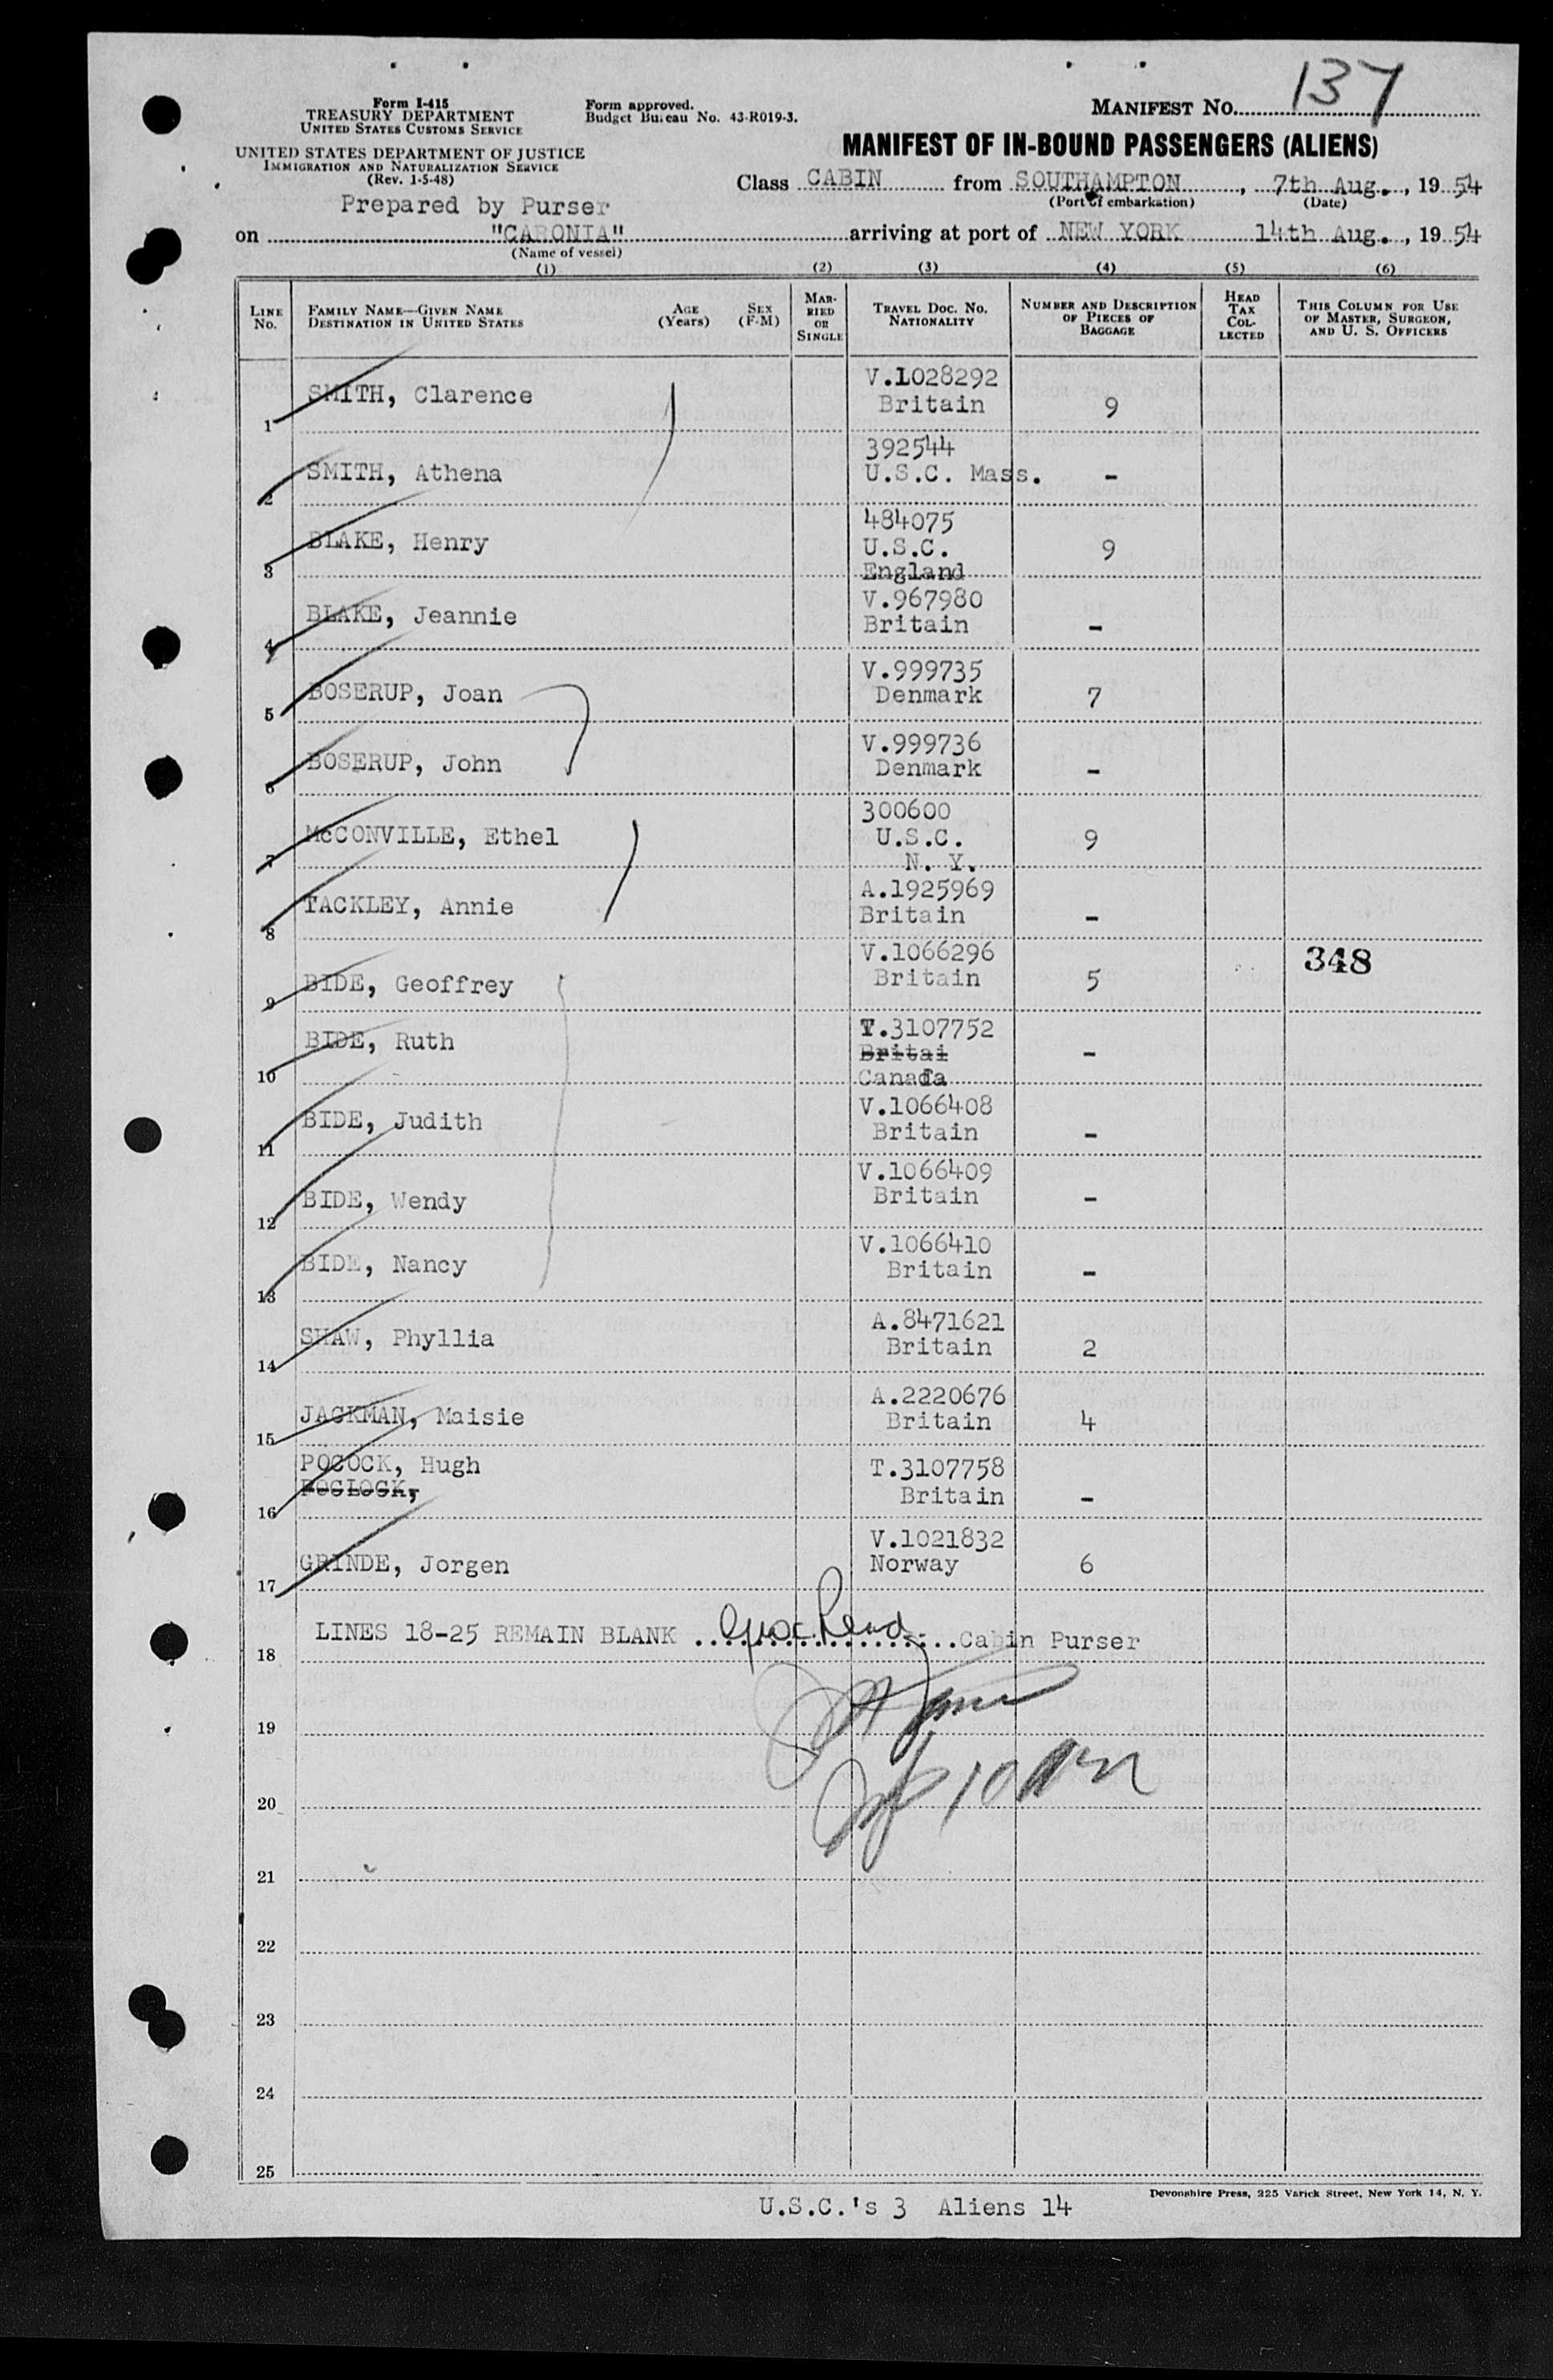 MANIFEST NO. 137
Form I-415
TREASURY DEPARTMENT
UNITED STATES CUSTOMS SERVICE
Form approved.
Budget Bureau No. 43-R019-3.
UNITED STATES DEPARTMENT OF JUSTICE
IMMIGRATION AND NATURALIZATION SERVICE
(Rev. 1-5-48)
MANIFEST OF IN-BOUND PASSENGERS (ALIENS)
Class CABIN from SOUTHAMPTON, 7th Aug., 19 54
(Port of embarkation) (Date)
Prepared by Purser
on "CARONIA" arriving at port of NEW YORK 14th Aug., 19 54
(Name of vessel)
(1) (2) (3) (4) (5) (6)
LINE No. FAMILY NAME—GIVEN NAME DESTINATION IN UNITED STATES AGE (Years) SEX (F-M) MARRIED OR SINGLE TRAVEL DOC. NO. NATIONALITY NUMBER AND DESCRIPTION OF PIECES OF BAGGAGE HEAD TAX COLLECTED THIS COLUMN FOR USE OF MASTER, SURGEON, AND U. S. OFFICERS
1 SMITH, Clarence V.1028292 Britain 9
2 SMITH, Athena 392544 U.S.C. Mass. -
3 BLAKE, Henry 484075 U.S.C. England 9
4 BLAKE, Jeannie V.967980 Britain -
5 BOSERUP, Joan V.999735 Denmark 7
6 BOSERUP, John V.999736 Denmark -
7 McCONVILLE, Ethel 300600 U.S.C. N. Y. 9
8 TACKLEY, Annie A.1925969 Britain -
9 BIDE, Geoffrey V.1066296 Britain 5 348
10 BIDE, Ruth T.3107752 Britai Canada -
11 BIDE, Judith V.1066408 Britain -
12 BIDE, Wendy V.1066409 Britain -
13 BIDE, Nancy V.1066410 Britain -
14 SHAW, Phyllia A.8471621 Britain 2
15 JACKMAN, Maisie A.2220676 Britain 4
16 POCOCK, Hugh T.3107758 Britain -
POCLOCK,
17 GRINDE, Jorgen V.1021832 Norway 6
18 LINES 18-25 REMAIN BLANK Cabin Purser
19
20
21
22
23
24
25
Devonshire Press, 225 Varick Street, New York 14, N. Y.
U.S.C.'s 3 Aliens 14